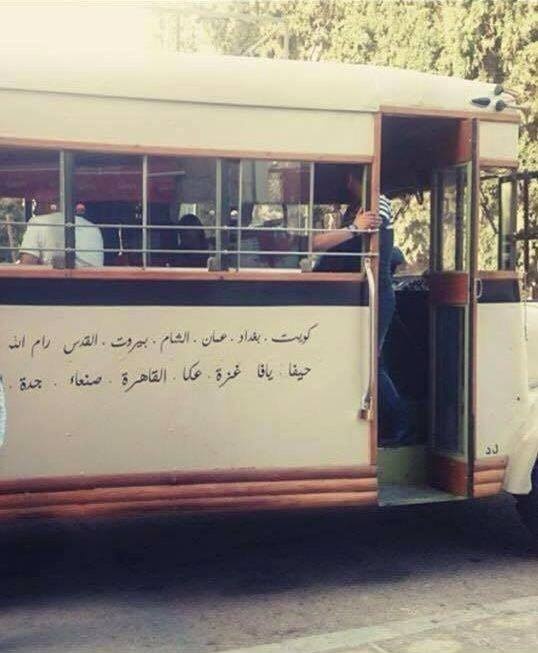 كويت . بغداد . عمان . الشام . بيروت . القدس رام الله
حيفا يافا غزة . عكا القاهرة . صنعاء . جدة .